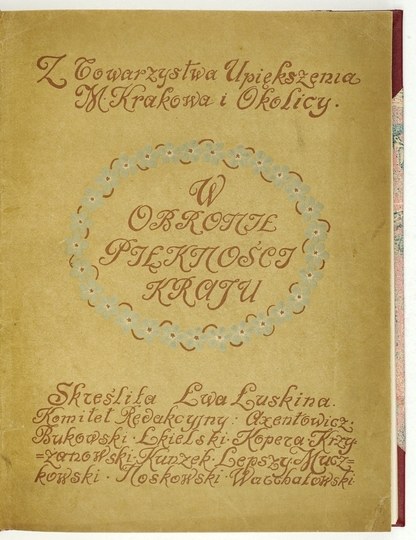 Z Towarzystwa Upiększenia
M. Krakowa i Okolicy.
W
OBRONIE
PIĘKNOŚCI
KRAJU
Skreśliła Ewa Łuskina.
Komitet Redakcyjny: Axentowicz,
Bukowski · Ekielski · Kopera · Krzy
=żanowski · Kunzek · Lepszy · Mucz=
kowski · Noskowski · Wacchalowski